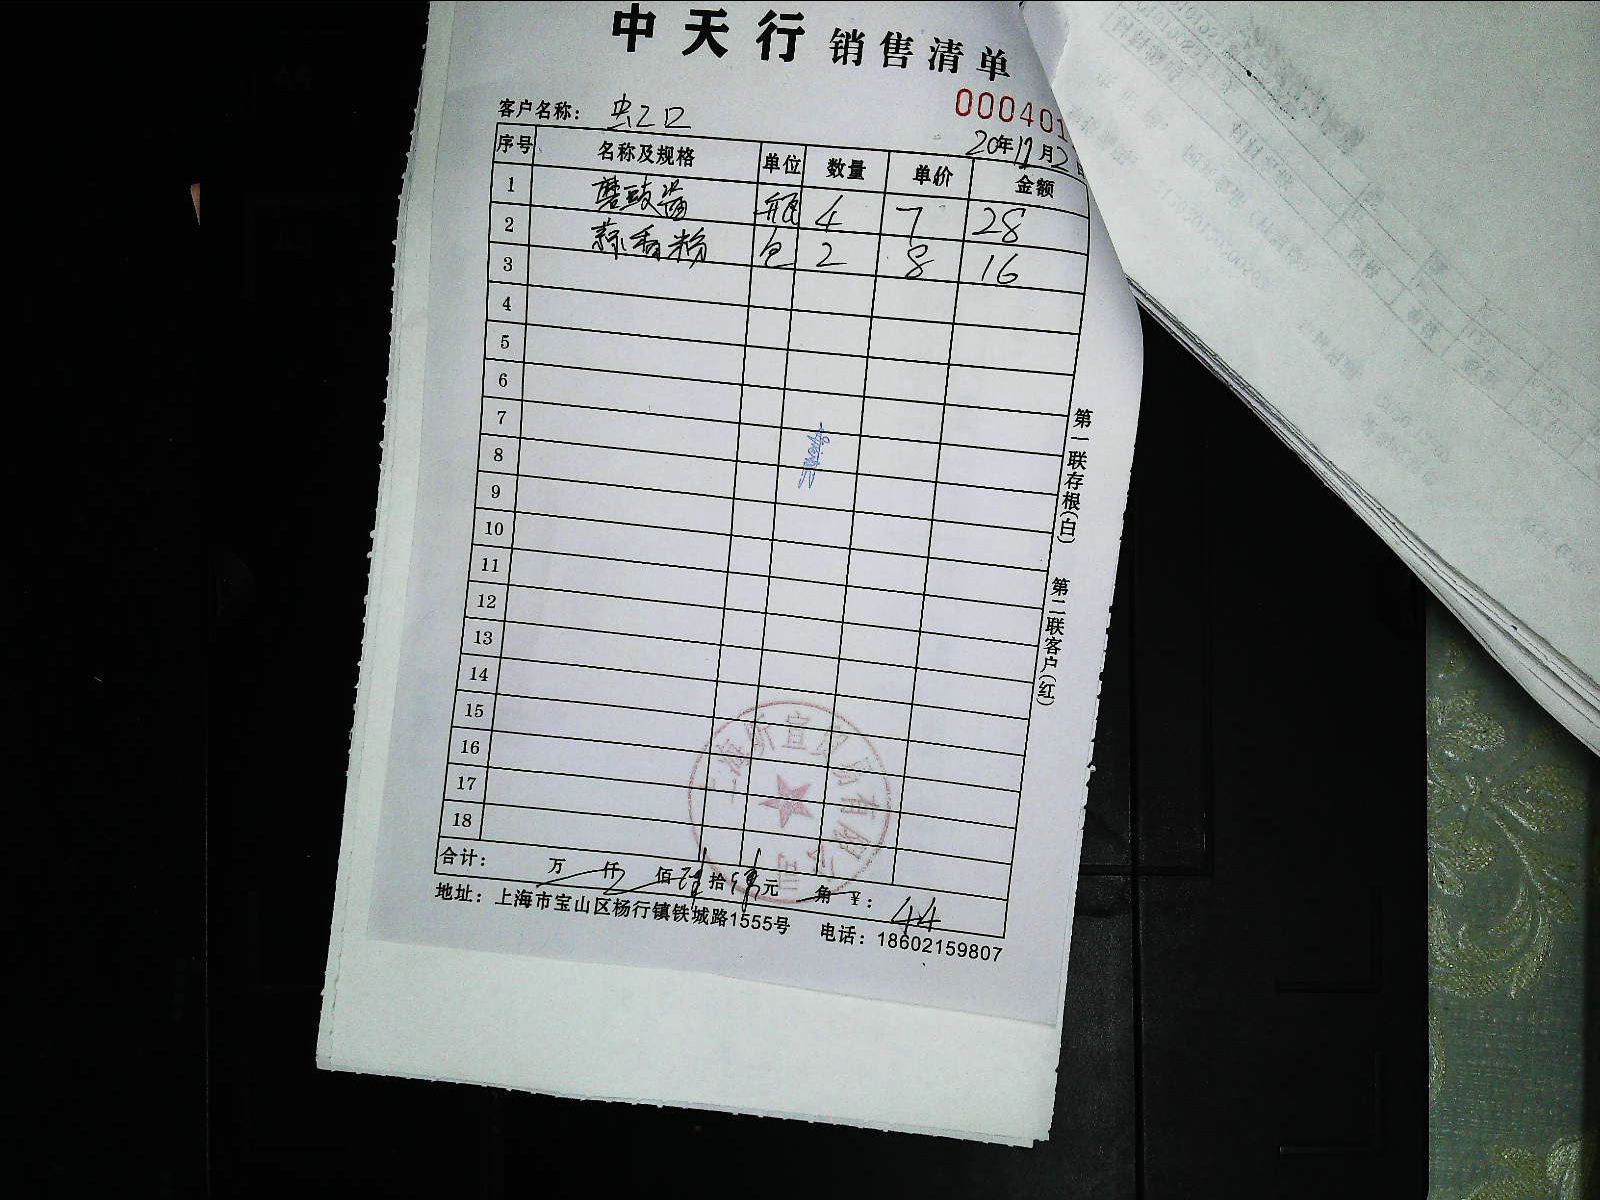 中天行 销售清单
000401
客户名称： 虹口
20年12月2
序号 名称及规格 单位 数量 单价 金额
1 蘑豉酱 瓶 4 7 28
2 蒜香粉 包 2 8 16
3
4
5
6
7
8
9
10
11
12
13
14
15
16
17
18
合计： 万 仟 佰 拾 元 角 ￥： 44
地址：上海市宝山区杨行镇铁城路1555号 电话：18602159807
第一联存根(白) 第二联客户(红)